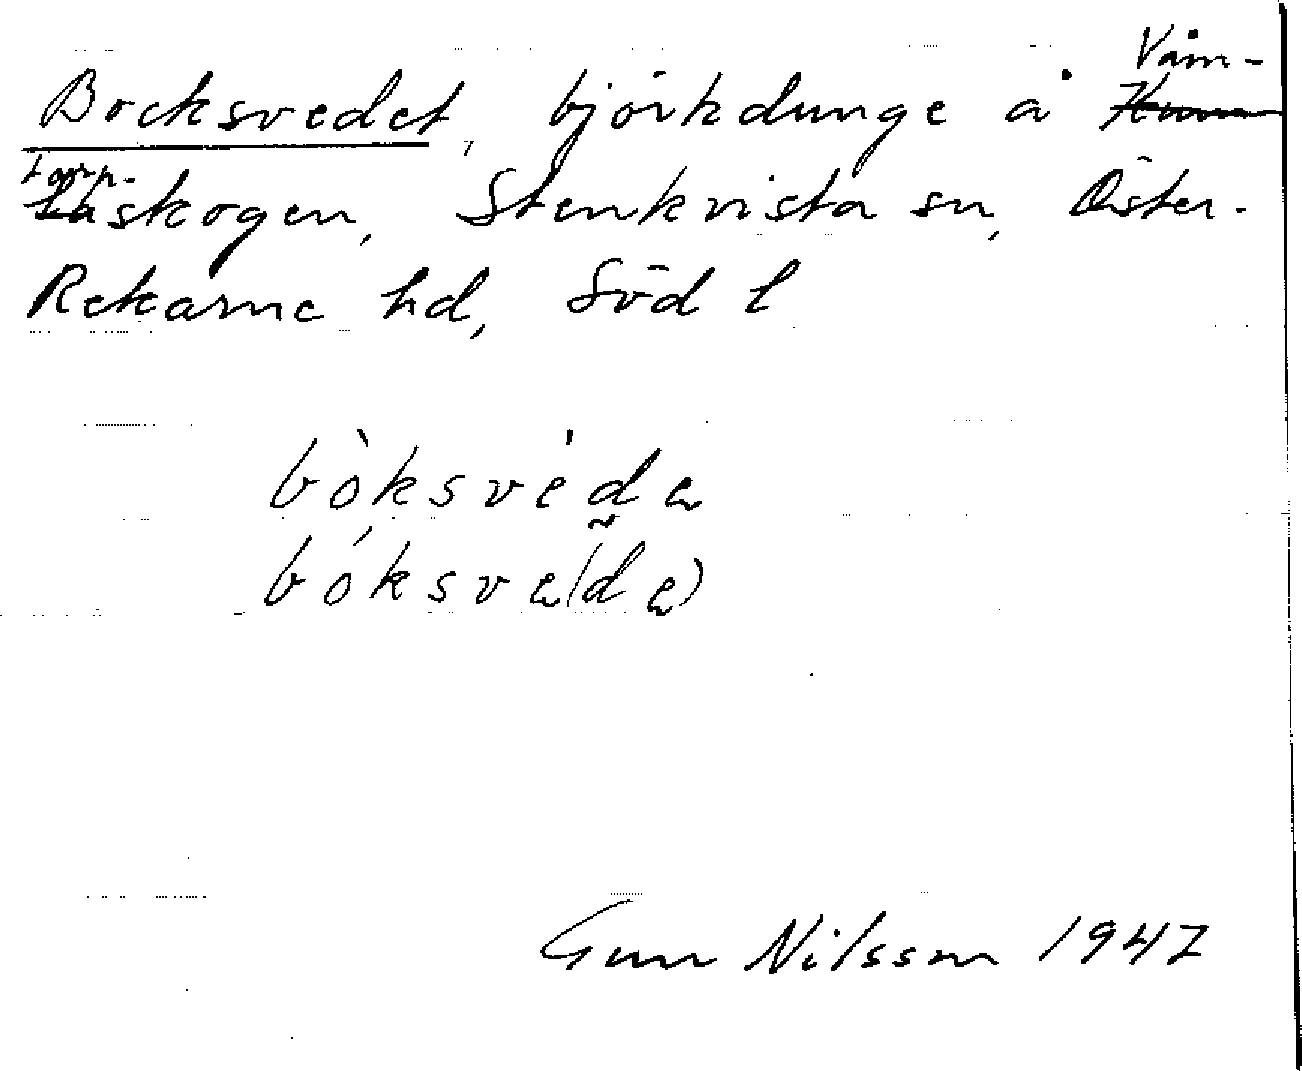 Bocksvedet, björkdunge å Våm-
torpskogen, Stenkvista sn, Öster-
Rekarne hd, Söd l
bòksvéda
bóksva(da)
Gun Nilsson 1947